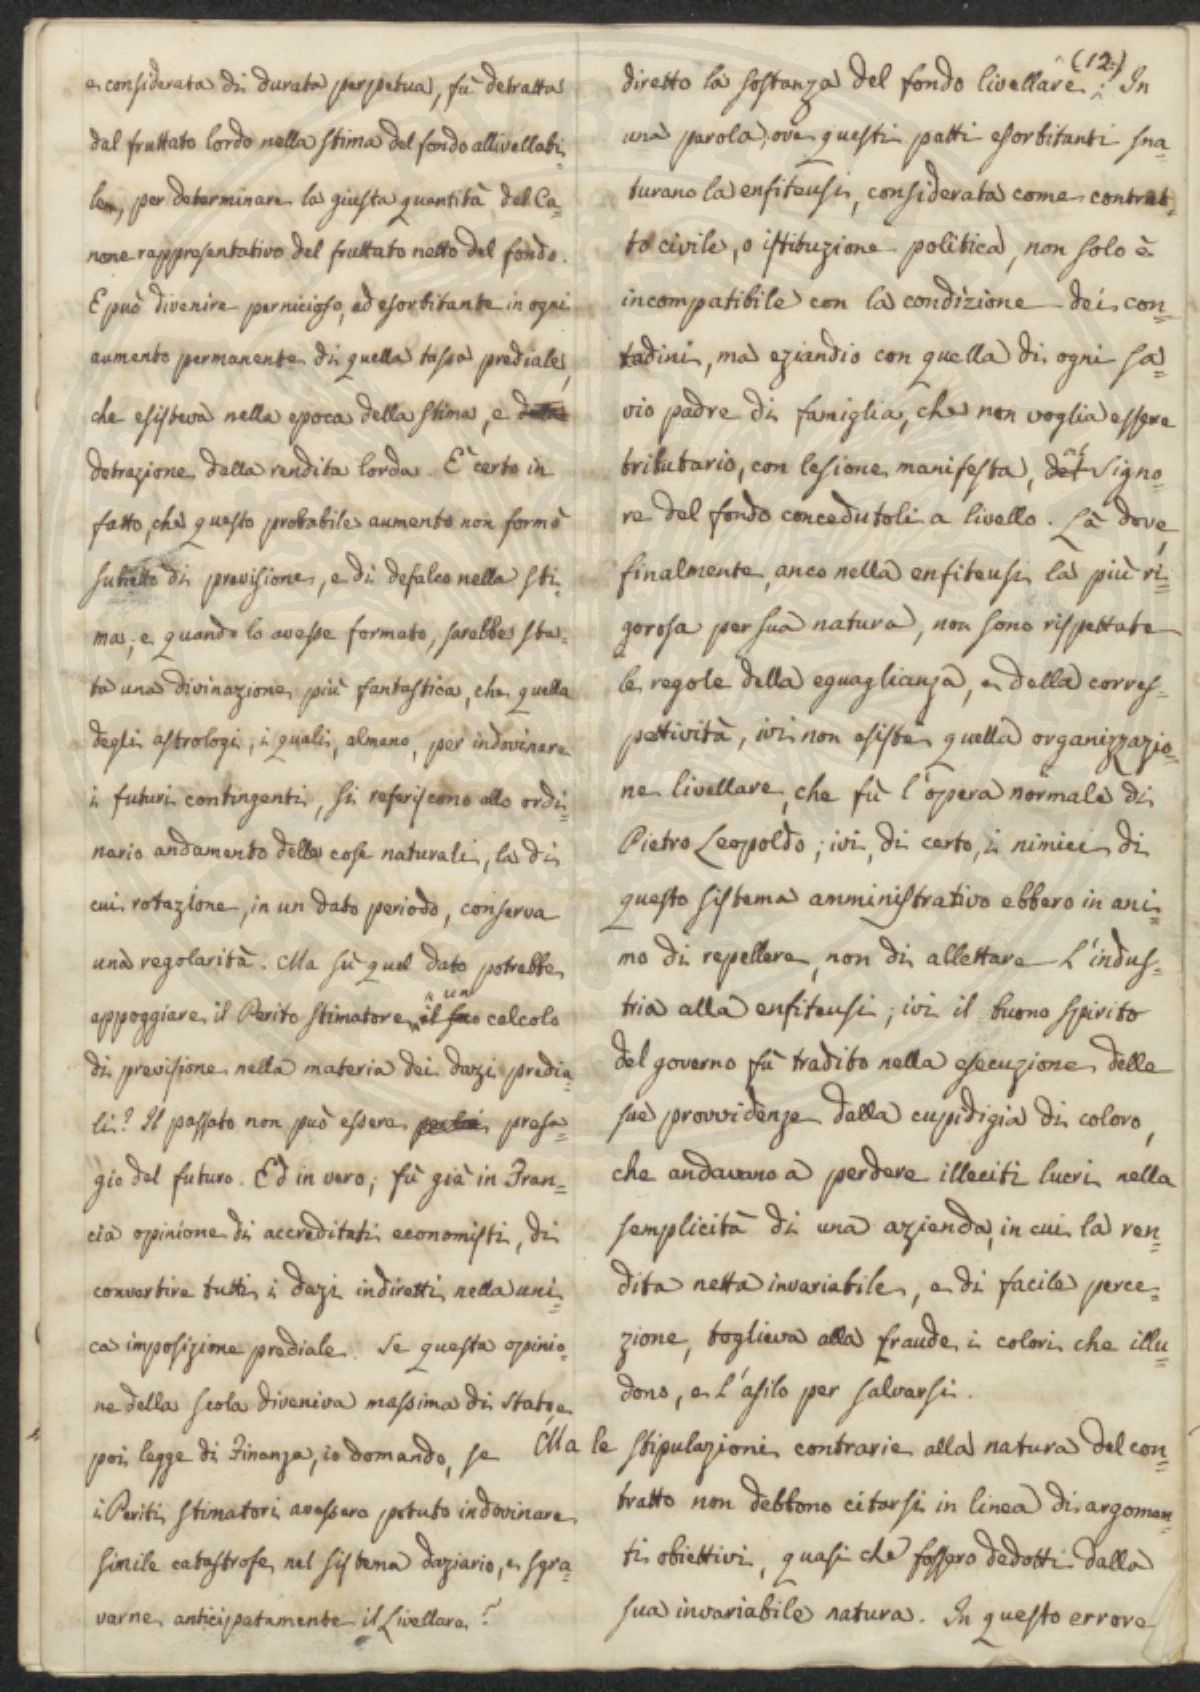 e considerata di durata perpetua, fù detratta
dal fruttato lordo nella stima del fondo allivellabi=
le, per determinare la giusta quantità del Ca=
none rappresentativo del fruttato netto del fondo.
E può divenire pernicioso, ed esorbitante in ogni
aumento permanente di quella tassa prediale,
che esisteva nella epoca della stima, e
detrazione dalla rendita lorda. È certo in
fatto, che questo probabile aumento non formò
subietto di previsione, e di defalco nella sti=
ma; e quando lo avesse formato, sarebbe sta=
ta una divinazione più fantastica, che quella
degli astrologi, i quali, almeno, per indovinare
i futuri contingenti, si referiscono allo ordi=
nario andamento delle cose naturali, la di
cui rotazione, in un dato periodo, conserva
una regolarità. Ma sù qual dato potrebbe
appoggiare il Perito stimatore un calcolo
di previsione nella materia dei dazi predia=
li? Il passato non può essere presa=
gio del futuro. Ed in vero; fù già in Fran=
cia opinione di accreditati economisti, di
convertire tutti i dazi indiretti nella uni=
ca imposizione prediale. Se questa opinio=
ne della scola diveniva massima di stato, e
poi legge di Finanza, io domando, se
i Periti stimatori avessero potuto indovinare
simile catastrofe nel sistema daziario, e sgra=
varne anticipatamente il Livellare?
(12.)
diretto la sostanza del fondo livellare; In
una parola, ove questi patti esorbitanti sna=
turano la enfiteusi, considerata come contrat=
to civile, o istituzione politica, non solo è
incompatibile con la condizione dei con=
tadini, ma eziandio con quella di ogni sa=
vio padre di famiglia, che non voglia essere
tributario, con lesione manifesta, del Signo=
re del fondo concedutoli a livello. Là dove,
finalmente, anco nella enfiteusi la più ri=
gorosa per sua natura, non sono rispettate
le regole della eguaglianza, e della corres=
pettività, ivi non esiste quella organizzazio=
ne livellare, che fù l'opera normale di
Pietro Leopoldo; ivi, di certo, i nimici di
questo sistema amministrativo ebbero in ani=
mo di repellere, non di allettare L'indus=
tria alla enfiteusi; ivi il buono spirito
del governo fù tradito nella esecuzione delle
sue provvidenze dalla cupidigia di coloro,
che andavano a perdere illeciti lucri nella
semplicità di una azienda, in cui la ren=
dita netta invariabile, e di facile perce=
zione, toglieva alla fraude i colori che illu=
dono, e L'asilo per salvarsi.
Ma le stipulazioni contrarie alla natura del con=
tratto non debbono citarsi in linea di argomen=
ti obiettivi, quasi che fossero dedotti dalla
sua invariabile natura. In questo errore